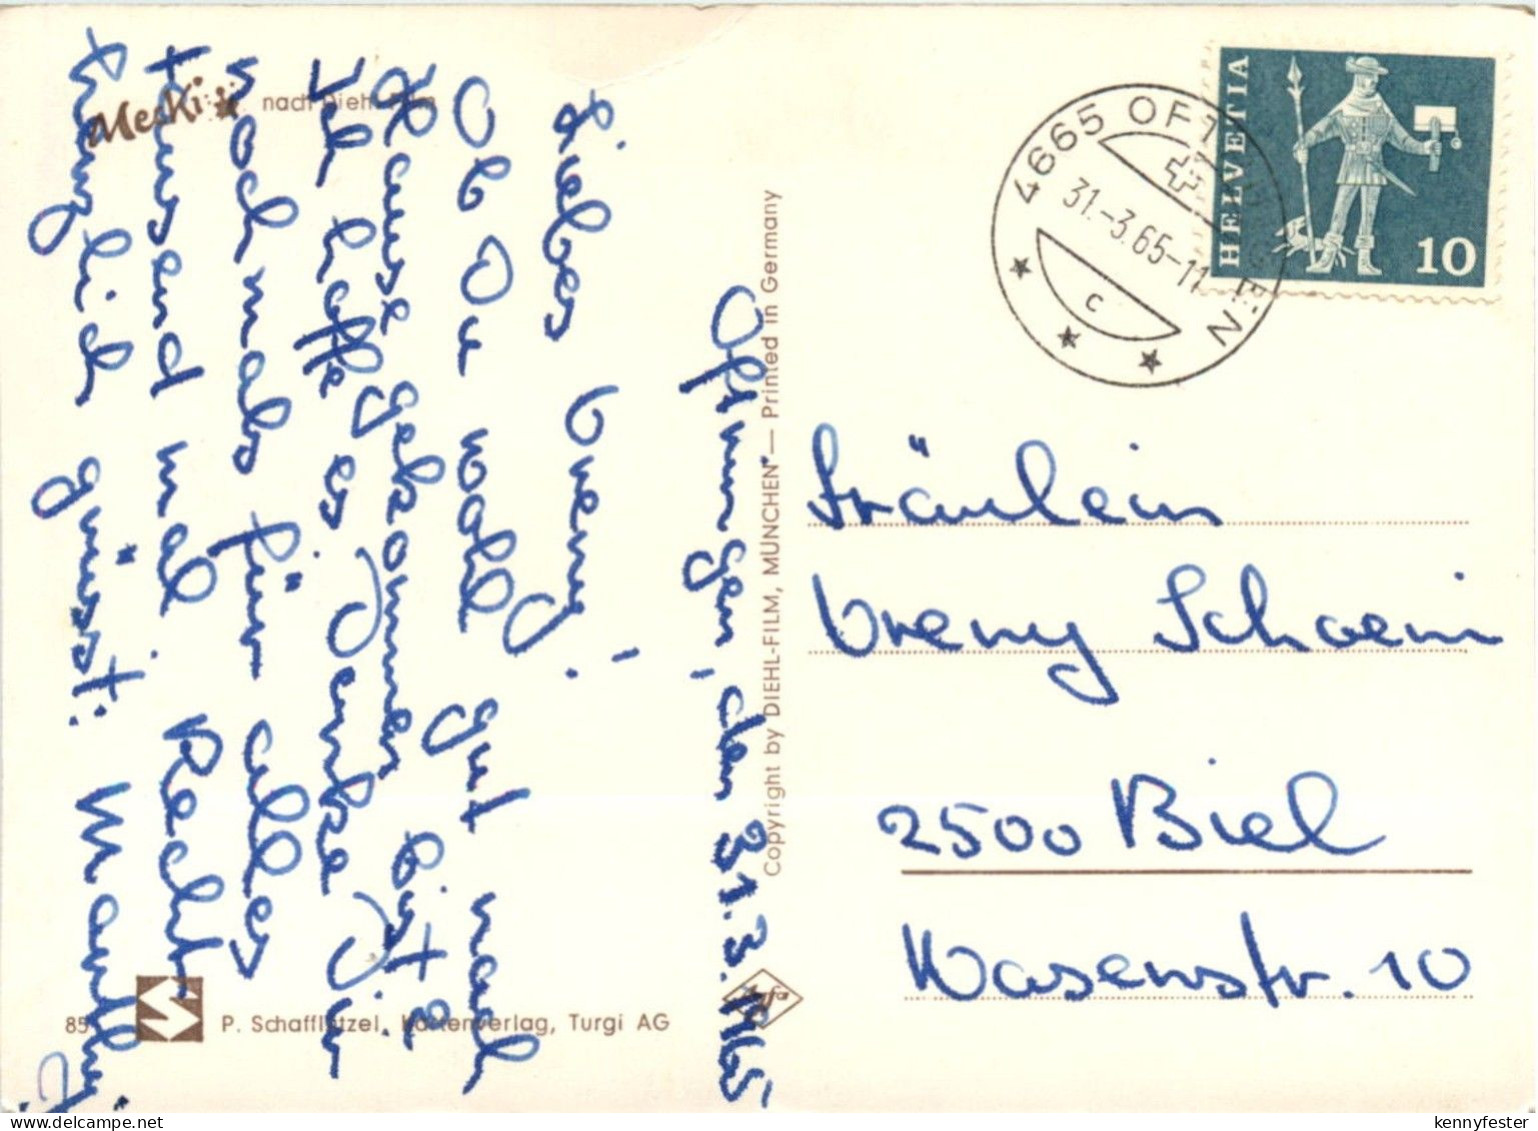 Mecki nach Diehl-Film
Oftringen, den 31.3.1965
Liebes Vreny!
Ob Du wohl gut nach
Hause gekommen bist?
Ich hoffe es. Danke Dir
nochmals für alles
tausend mal. Recht
herzlich grüsst:
Copyright by DIEHL-FILM, MÜNCHEN — Printed in Germany
85
P. Schafflützel, Kartenverlag, Turgi AG
Agfa
4665 OFTRINGEN
31.-3.65-11
C
HELVETIA
10
Fräulein
Vreny Schoeni
2500 Biel
Wasenstr. 10
delcampe.net
kennyfester